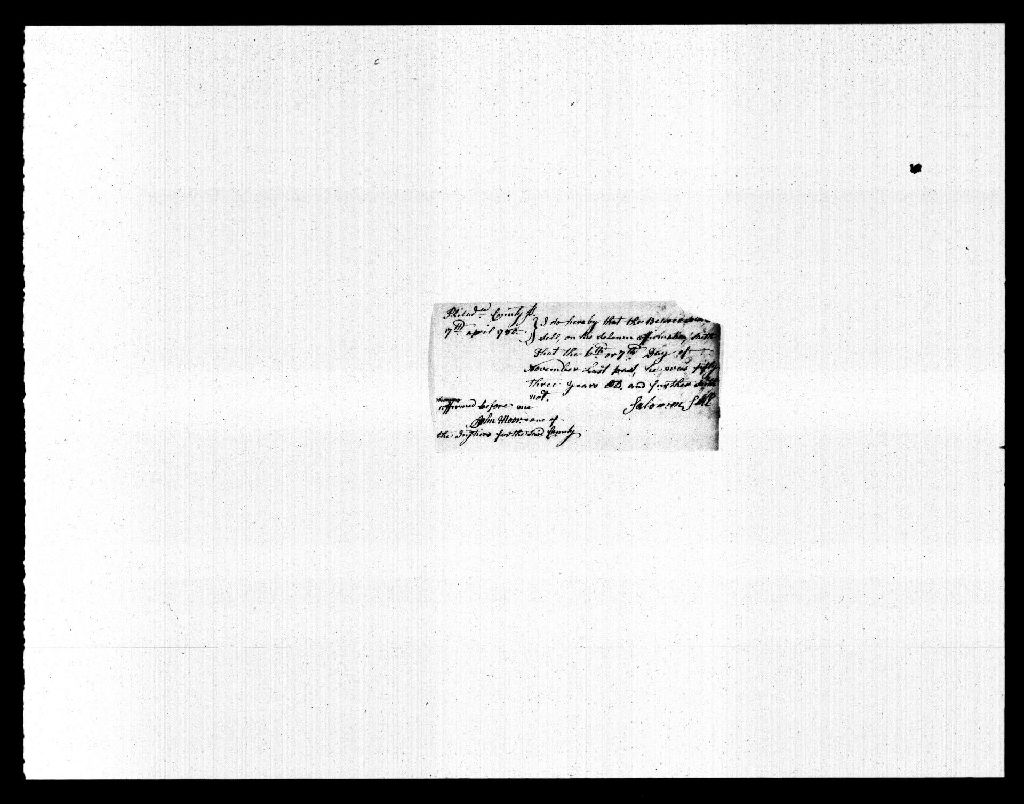 Philad.a County ss.
7th april 1782 I do hereby that the
Sell, on his Solemn affirmation, saith
that the 6th or 7th Day of
November Last Past, he was fifty
three years old, and further saith
not.
Solomon Sell
affirmed before me
John Moor one of
the Justices for the said County